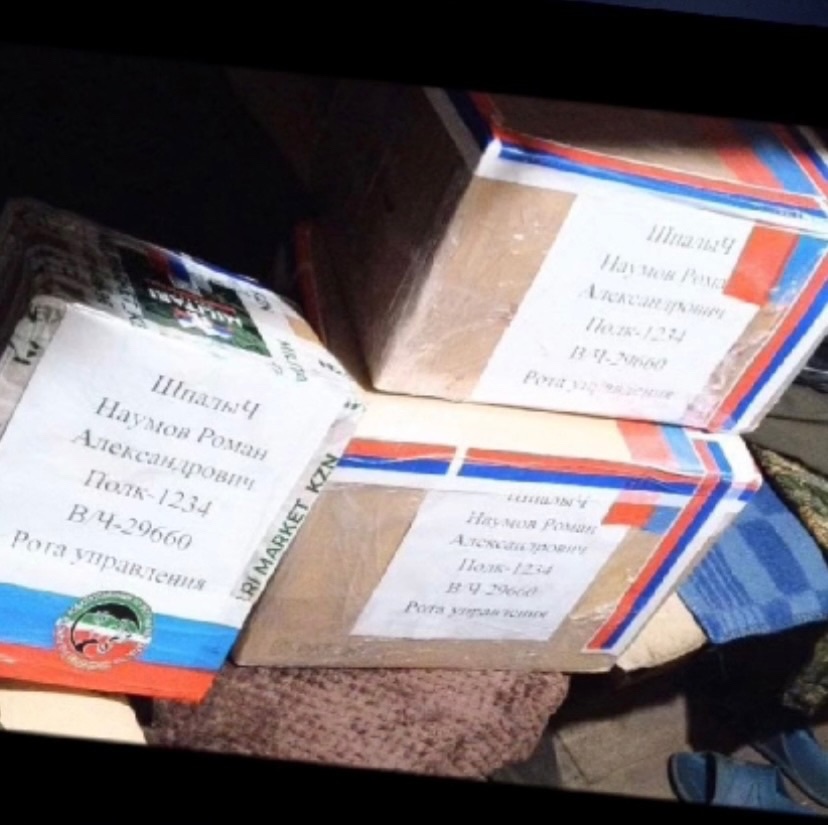 ШпалыЧ
Наумов Роман
Александрович
Полк-1234
В/Ч-29660
Рота управления
MILITARI
RI MARKET KZN
ШпалыЧ
Наумов Рома
Александрович
Полк-1234
В/Ч-29660
Рота управления
ШпалыЧ
Наумов Роман
Александрович
Полк-1234
В/Ч 29660
Рота управления